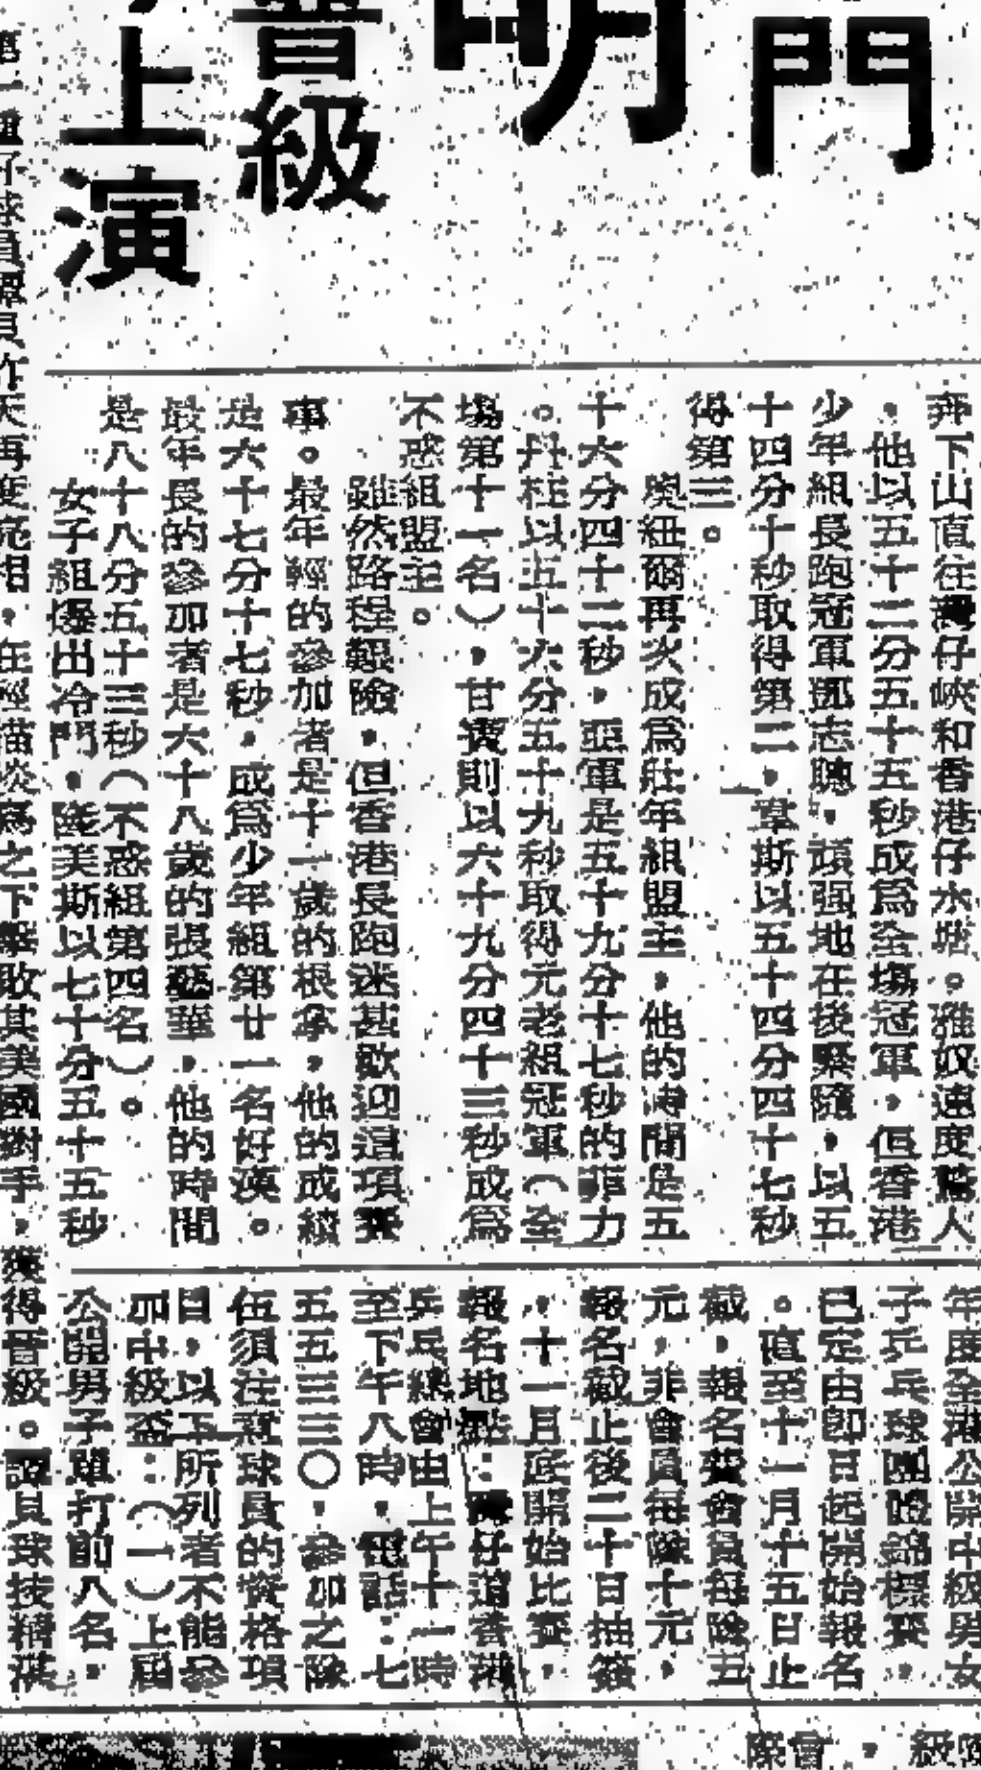 門
明
晉級
上演
奔下山直往灣仔峽和香港仔水塘。雅奴速度驚人
，他以五十二分五十五秒成爲全場冠軍，但香港
少年組長跑冠軍鄧志聰，頑强地在後緊隨，以五
十四分十秒取得第二，韋斯以五十四分四十七秒
得第三。
奧紐爾再次成爲壯年組盟主，他的時間是五
十六分四十二秒，亞軍是五十九分十七秒的菲力
。丹柱以五十六分五十九秒取得元老組冠軍（全
場第十一名），甘賓則以六十九分四十三秒成爲
不惑組盟主。
雖然路程艱險，但香港長跑迷甚歡迎這項賽
事。最年輕的參加者是十一歲的根拿，他的成績
是六十七分十七秒，成爲少年組第廿一名好漢。
最年長的參加者是六十八歲的張華，他的時間
是八十八分五十三秒（不惑組第四名）。
女子組爆出冷門，美斯以七十分五十五秒
第一種子球員昨天再度亮相，在輕描淡寫之下擊敗其美國對手，獲得晉級。球技精湛
年度全港公開中級男女
子乒乓球團體錦標賽，
已定由即日起開始報名
。直至十一月十五日止
截，報名費會員每隊五
元，非會員每隊十元，
報名截止後二十日抽籤
，十一月底開始比賽，
報名地點：仔道香港
乒乓總會由上午十一時
至下午八時，電話：七
五五三三〇，參加之隊
伍須注意球員的資格項
目，以下所列者不能參
加中級盃：（一）上屆
公開男子單打前八名，